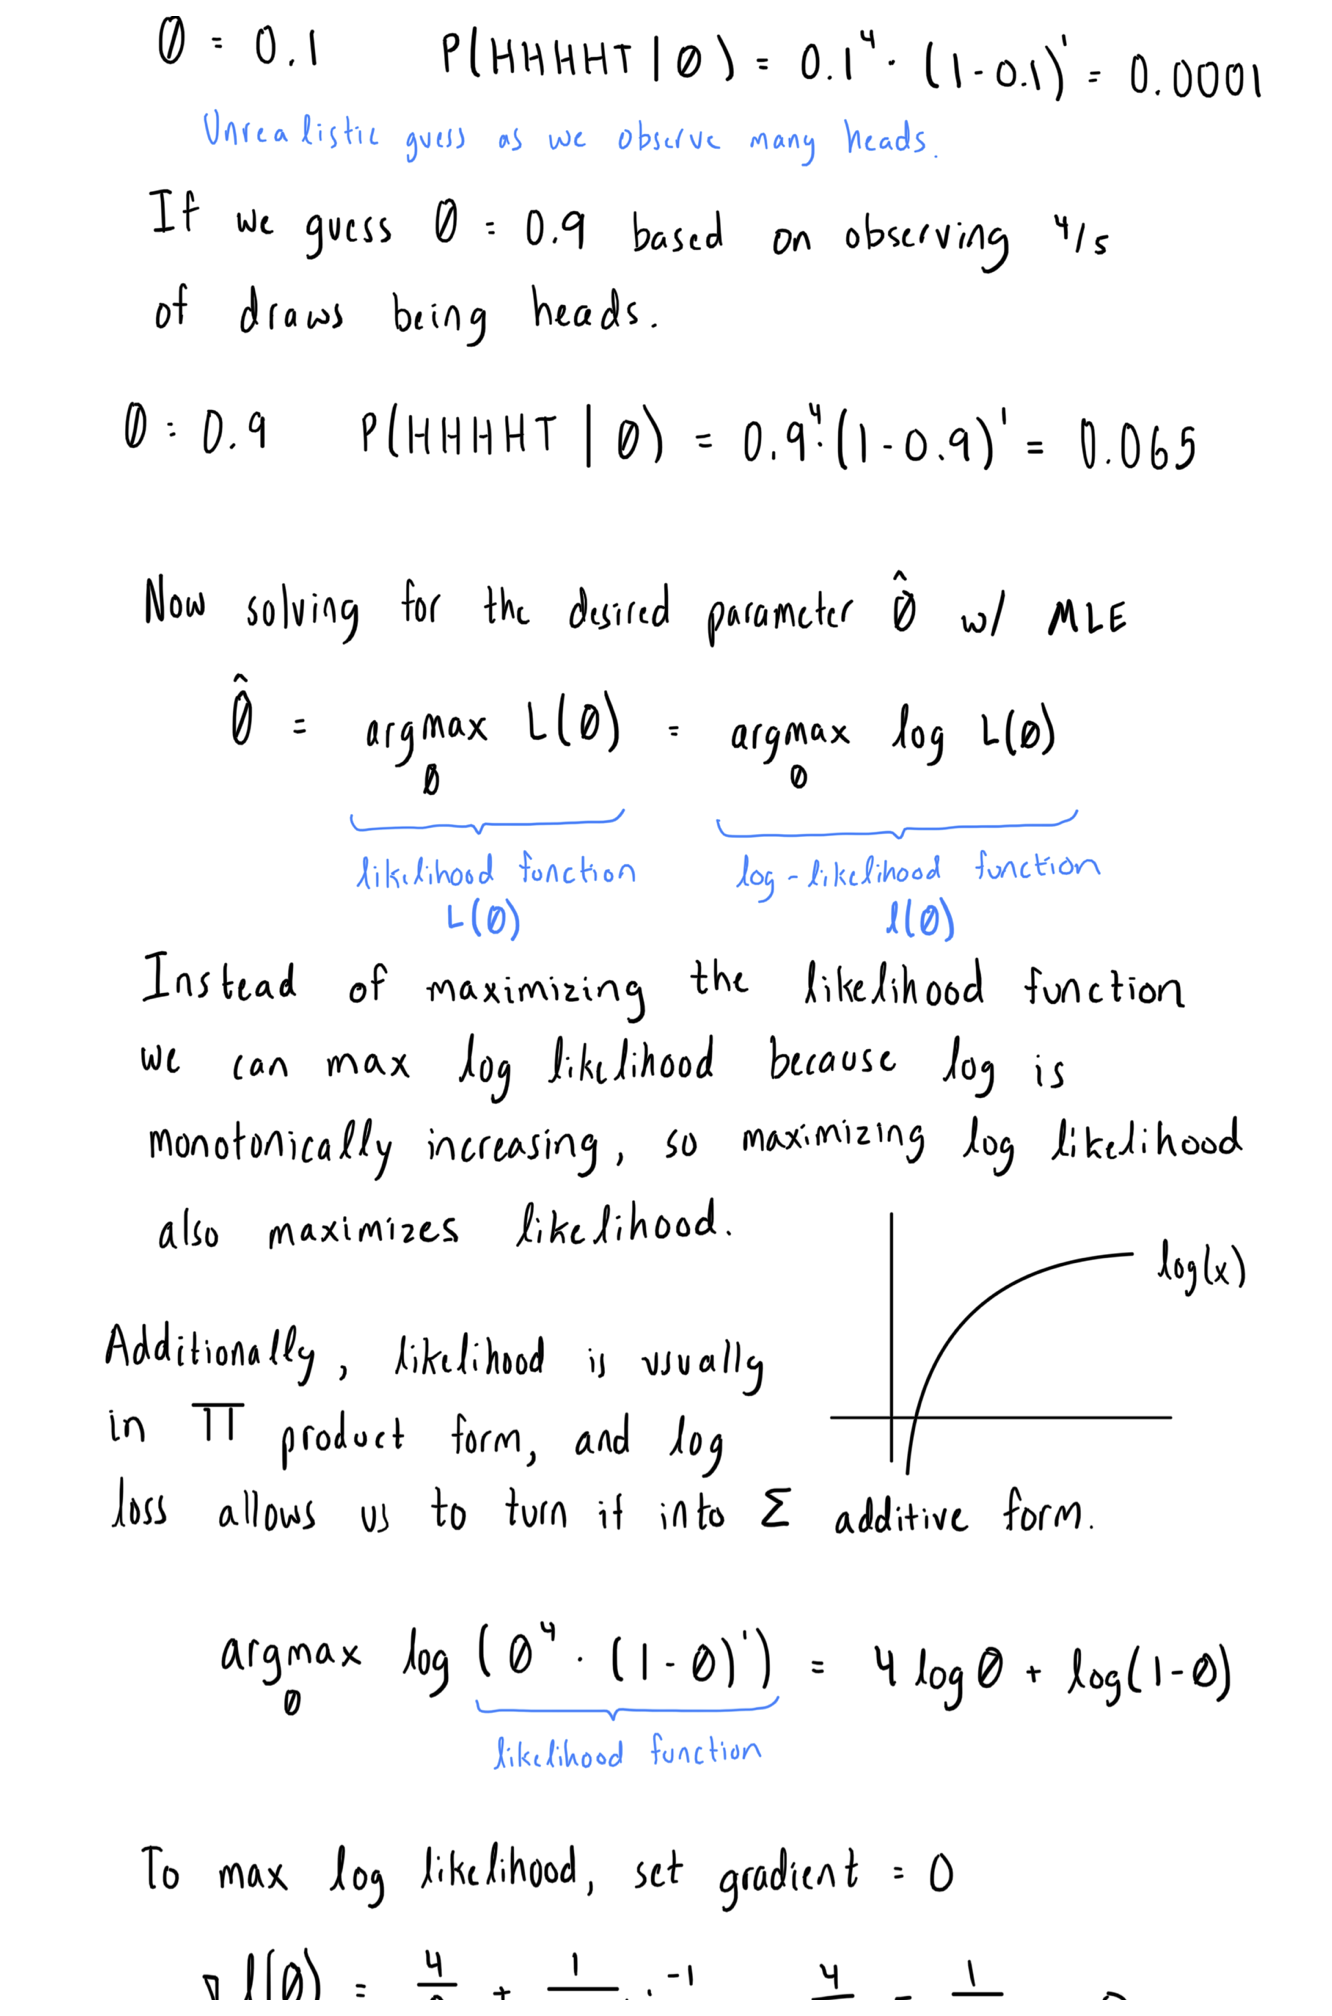 θ = 0.1 P(HHHHT | θ) = 0.1⁴ · (1-0.1)¹ = 0.0001
Unrealistic guess as we observe many heads.
If we guess θ = 0.9 based on observing 4/5
of draws being heads.
θ = 0.9 P(HHHHT | θ) = 0.9⁴·(1-0.9)¹ = 0.065
Now solving for the desired parameter θ̂ w/ MLE
θ̂ = argmax L(θ) = argmax log L(θ)
θ θ
likelihood function log-likelihood function
L(θ) l(θ)
Instead of maximizing the likelihood function
we can max log likelihood because log is
monotonically increasing, so maximizing log likelihood
also maximizes likelihood.
log(x)
Additionally, likelihood is usually
in Π product form, and log
loss allows us to turn it into Σ additive form.
argmax log (θ⁴ · (1-θ)¹) = 4 log θ + log(1-θ)
θ
likelihood function
To max log likelihood, set gradient = 0
∇ l(θ) = 4 + 1 · -1 4 - 1